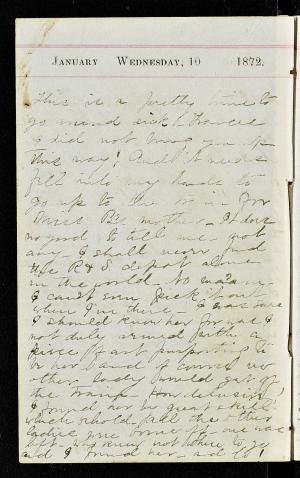 January Wednesday, 10 1872.
This is a pretty time to
go around sick! Frances
I did not bring you up
this way! And it
fell into my hands to
go up to the train for
Miss mother. It does
no good to tell me not
any. I shall never find
the R & S depot alone
in the world. No ma'am.
I can't even pick it out
when I'm there. I was sure
I should know her for was I
not duly armed with a
piece of art purporting to
be her, and of course no
other lady would get off
the train delusion!
I found her by great skill
which told, all the other
ladies gone but one was
left. who knew not where to go
and I found her and lo!